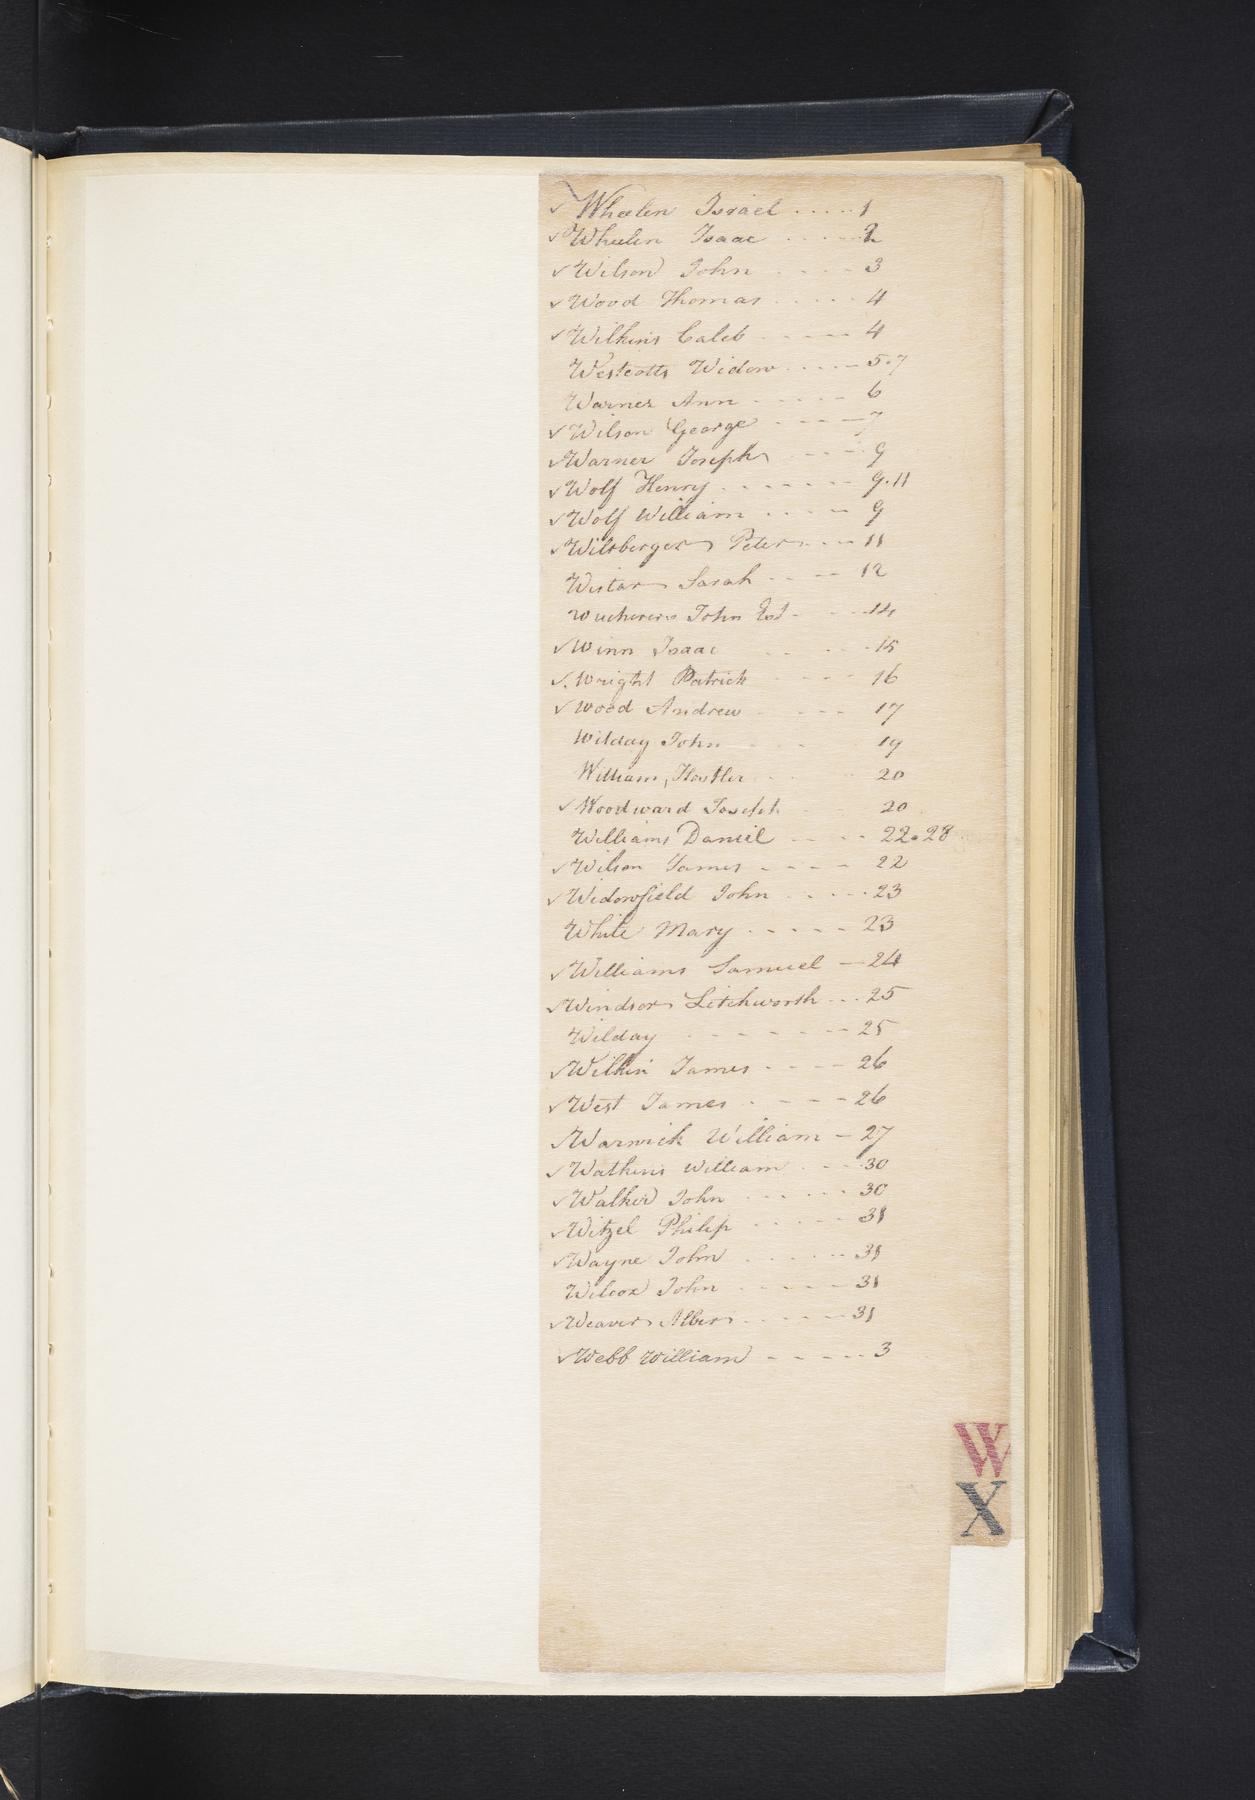 ✓ Wheelen Israel ..... 1
✓ Wheelen Isaac ..... 2
✓ Wilson John .... 3
✓ Wood Thomas ..... 4
✓ Wilkins Caleb ..... 4
Westcotts Widow .... 5.7
Warner Ann ..... 6
✓ Wilson George .... 7
✓ Warner Joseph .... 9
✓ Wolf Henry ...... 9.11
✓ Wolf William .... 9
✓ Wilsberger Peter ... 11
Wistar Sarah .... 12
Wucherers John Est ... 14
✓ Winn Isaac .... 15
✓ Wright Patrick .... 16
✓ Wood Andrew .... 17
Wilday John .. 19
William, Hostler .. 20
✓ Woodward Joseph .. 20
Williams Daniel .... 22.28
✓ Wilson James .... 22
✓ Widowfield John ..... 23
White Mary ..... 23
✓ Williams Samuel - 24
✓ Windsor Letchworth ... 25
Wilday ...... 25
✓ Wilkin James .... 26
✓ West James .... 26
✓ Warwick William - 27
✓ Watkins William .... 30
✓ Walker John ...... 30
✓ Witzel Philip ..... 31
✓ Wayne John ...... 31
Wilcox John ..... 31
✓ Weaver ...... 31
✓ Webb William ...... 3
W
X